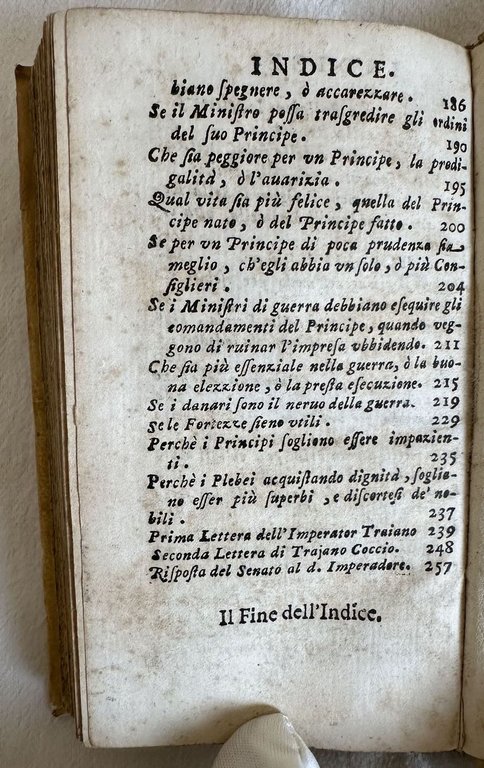 INDICE.
biano ſpegnere, ò accarezzare. 186
Se il Miniſtro poſſa traſgredire gli ordini
del ſuo Principe. 190
Che ſia peggiore per vn Principe, la prodi-
galità, ò l'auarizia. 195
Qual vita ſia più felice, quella del Prin-
cipe nato, ò del Principe fatto. 200
Se per vn Principe di poca prudenza ſia
meglio, ch'egli abbia vn ſolo, ò più Con-
ſiglieri. 204
Se i Miniſtri di guerra debbiano eſequire gli
comandamenti del Principe, quando veg-
gono di ruinar l'impreſa vbbidendo. 211
Che ſia più eſſenziale nella guerra, ò la buo-
na elezzione, ò la preſta eſecuzione. 215
Se i danari ſono il neruo della guerra. 219
Se le Fortezze ſieno vtili. 229
Perchè i Principi ſogliono eſſere impazien-
ti. 235
Perchè i Plebei acquiſtando dignità, ſoglia-
no eſſer più ſuperbi, e diſcorteſi de' no-
bili. 237
Prima Lettera dell'Imperator Traiano 239
Seconda Lettera di Trajano Coccio. 248
Riſpoſta del Senato al d. Imperadore. 257
Il Fine dell'Indice.